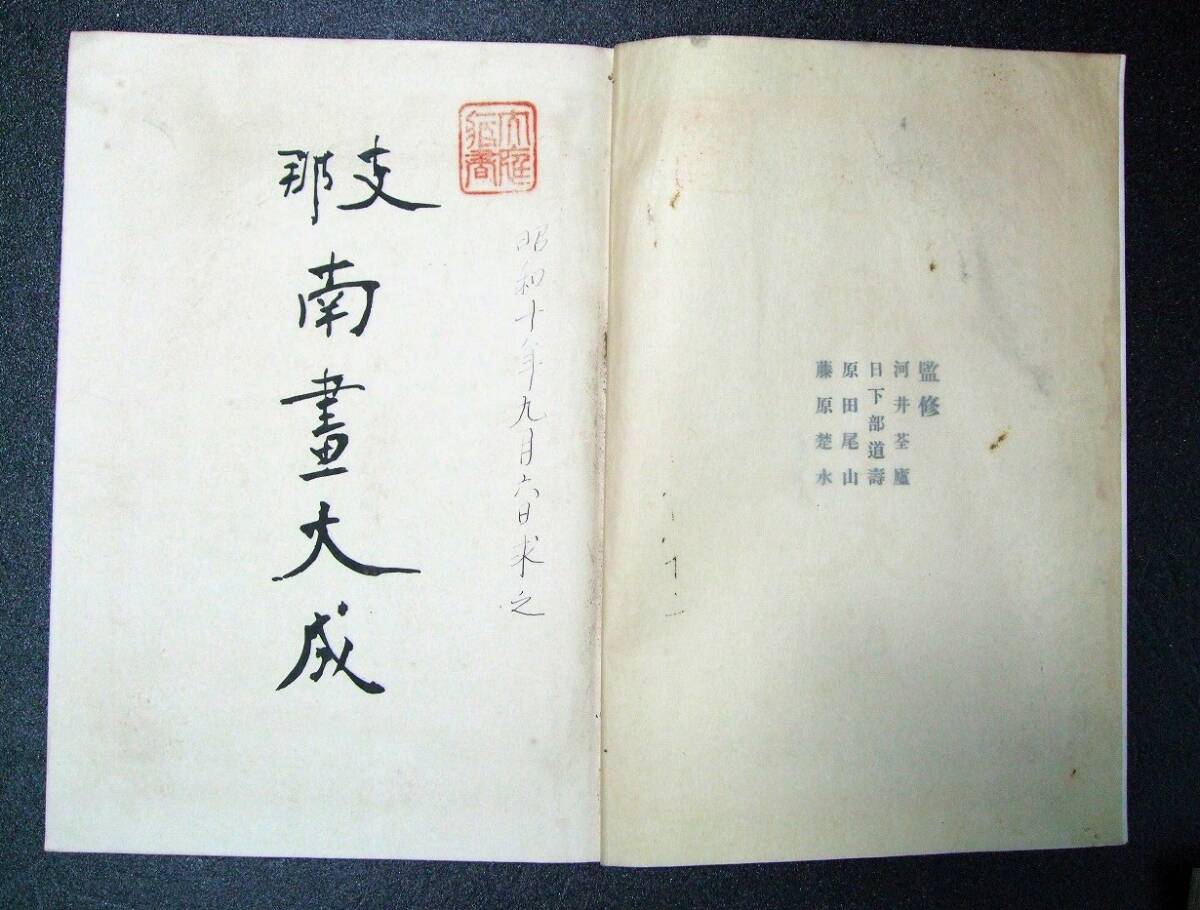 監修
河井荃廬
日下部道壽
原田尾山
藤原楚水
昭和十年九月六日求之
支那
南畫大成